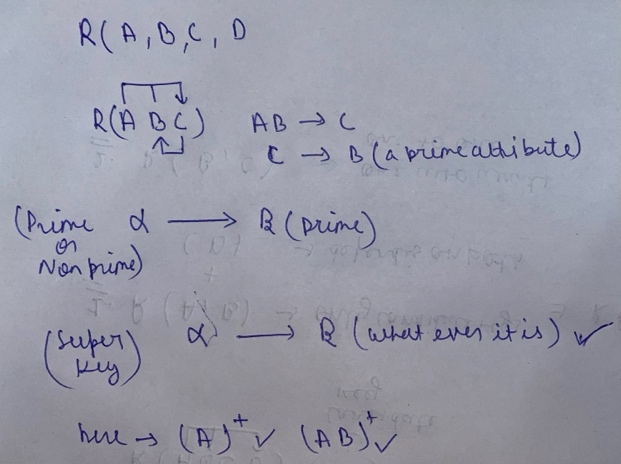 R(A, B, C, D
R(A B C) AB → C
C → B (a prime attribute)
(Prime α → B (prime)
or
Non prime)
(Super α → B (what ever it is) ✓
key)
here → (A)⁺ ✓ (AB)⁺ ✓